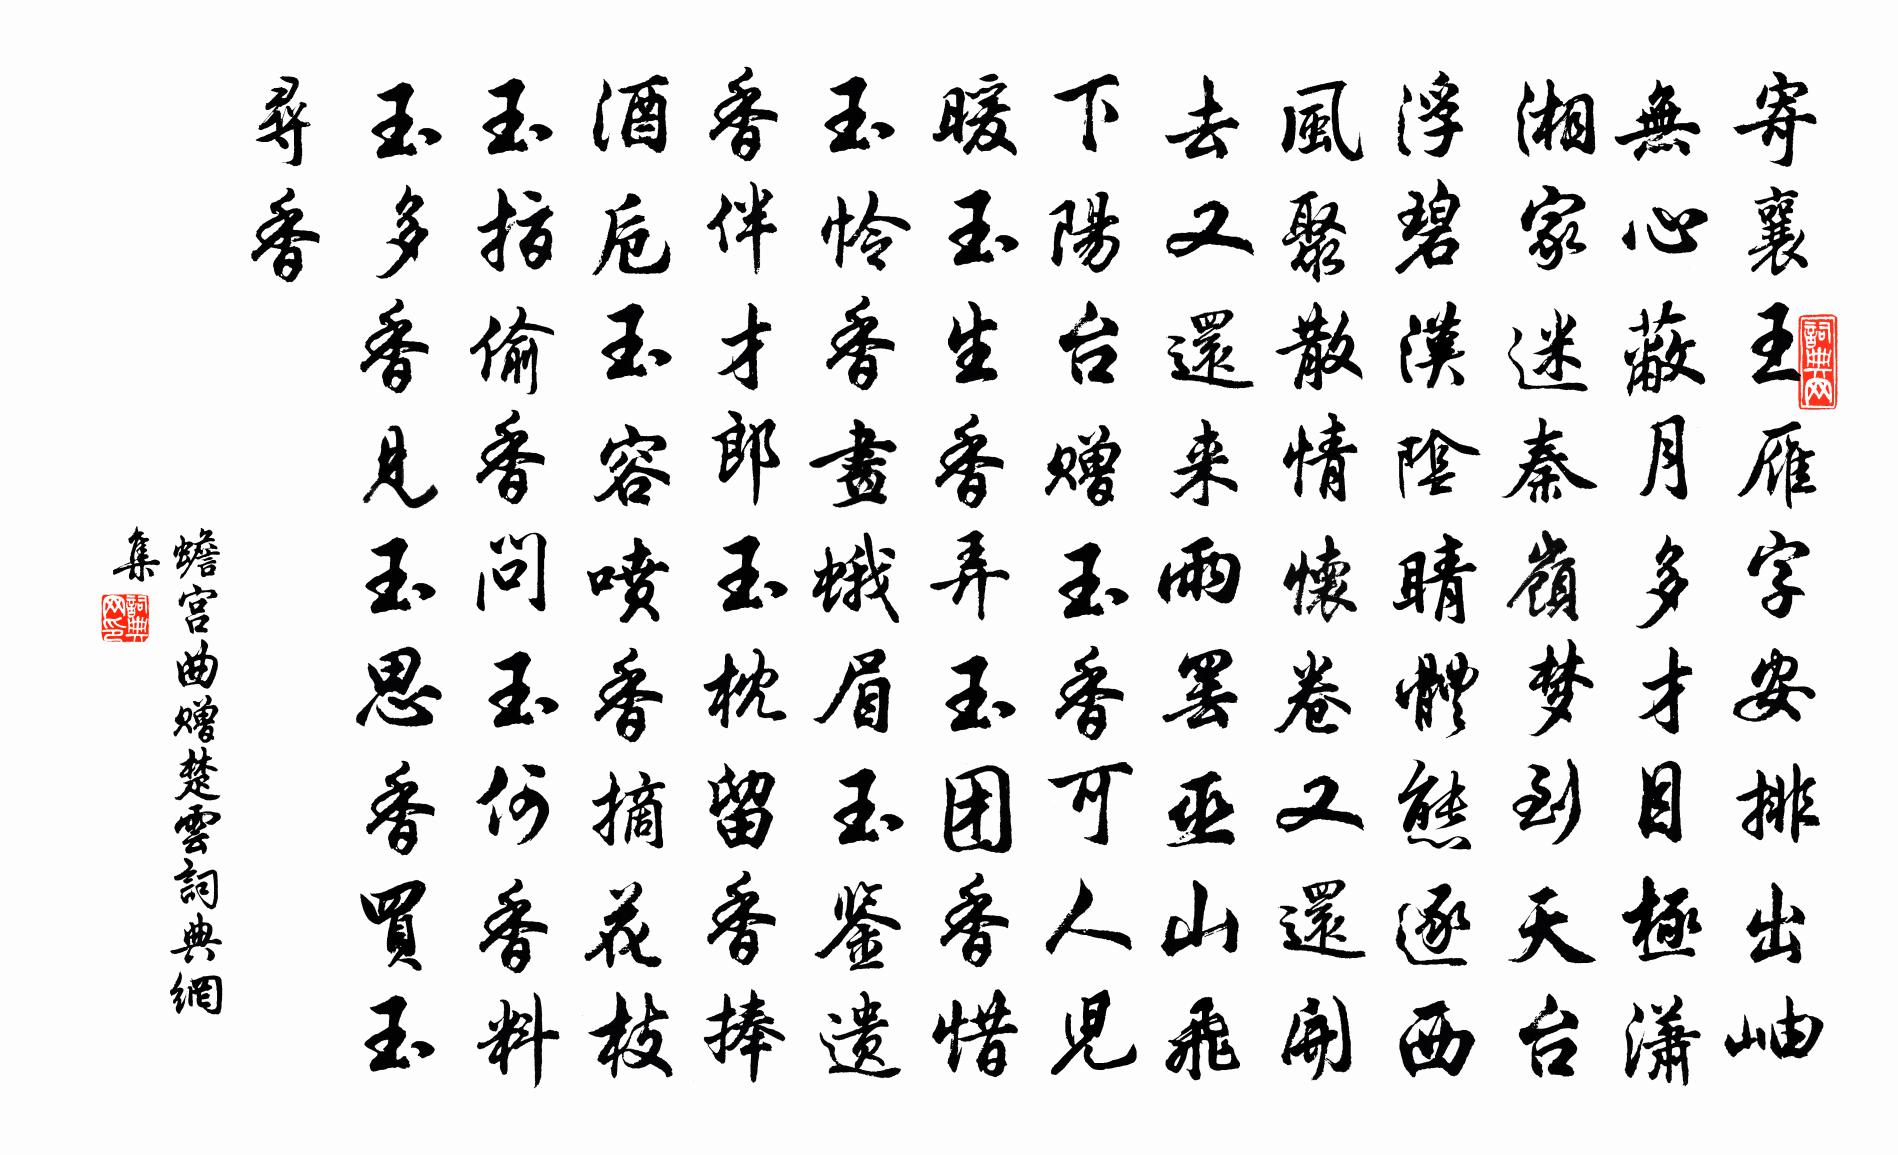 寄襄王雁字安排出岫
無心蔽月多才目極瀟
湘家迷秦嶺梦到天台
浮碧漢陰晴體態逐西
風聚散情懷卷又還開
去又還来雨罢巫山飛
下陽台赠玉香可人兒
暖玉生香弄玉团香惜
玉怜香畫蛾眉玉鉴遗
香伴才郎玉枕留香捧
酒卮玉容喷香摘花枝
玉指偷香問玉何香料
玉多香見玉思香買玉
尋香
蟾宫曲赠楚雲詞典網
集
詞典网
詞典网印